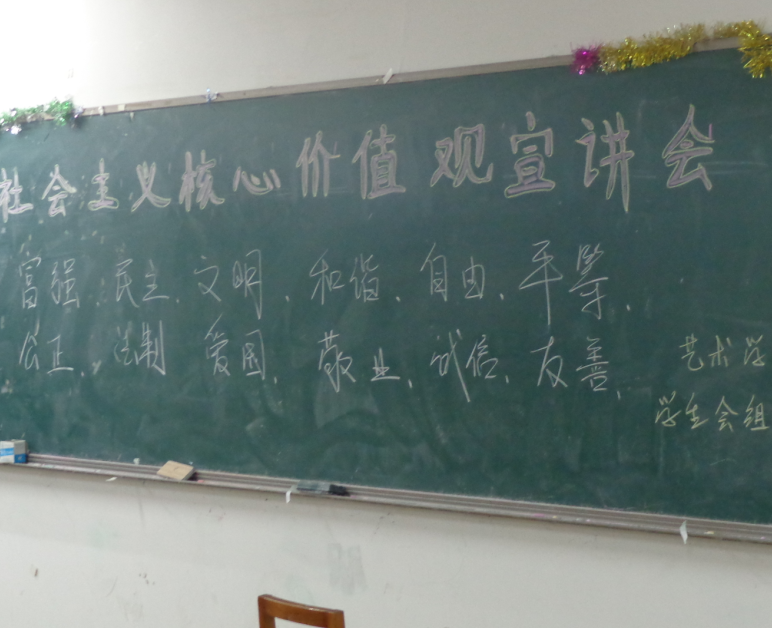 社会主义核心价值观宣讲会
富强、民主、文明、和谐、自由、平等、
公正、法制 爱国、敬业、诚信、友善、
艺术学
学生会组